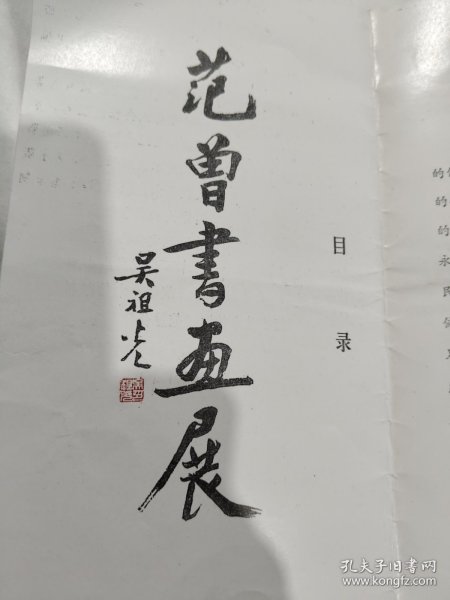 范曾書画展
吴祖光
目录
的
的
的
永
孔夫子旧书网
www.kongfz.com